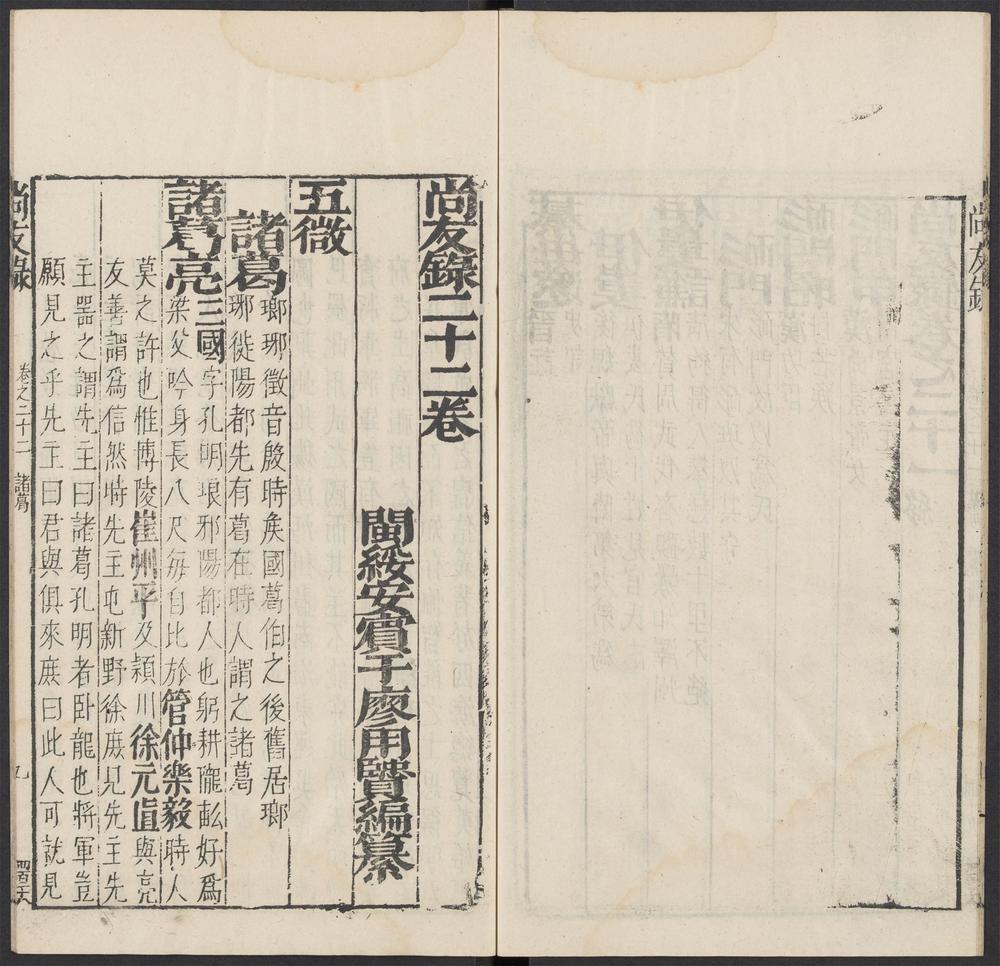 尚友錄
尚友錄二十二卷
閩綏安賓于廖用賢編纂
五微
諸葛
瑯琊徵音殷時矦國葛伯之後舊居瑯
琊徙陽都先有葛在時人謂之諸葛
諸葛亮三國字孔明琅邪陽都人也躬耕隴畝好爲
梁父吟身長八尺每自比於管仲樂毅時人
莫之許也惟博陵崔州平及潁川徐元直與亮
友善謂爲信然時先主屯新野徐庶見先主先
主器之謂先主曰諸葛孔明者卧龍也將軍豈
願見之乎先主曰君與俱來庶曰此人可就見
尚友錄
卷之二十二
諸葛